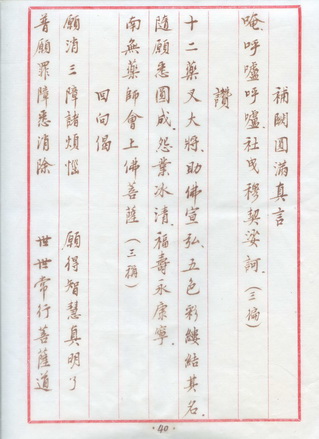 補闕圓滿真言
唵.呼嚧呼嚧.社曳穆契娑訶.(三徧)
讚
十二藥叉大將.助佛宣弘.五色彩縷結其名.
隨願悉圓成.怨業冰清.福壽永康寧.
南無藥師會上佛菩薩(三稱)
回向偈
願消三障諸煩惱 願得智慧真明了
普願罪障悉消除 世世常行菩薩道
·40·